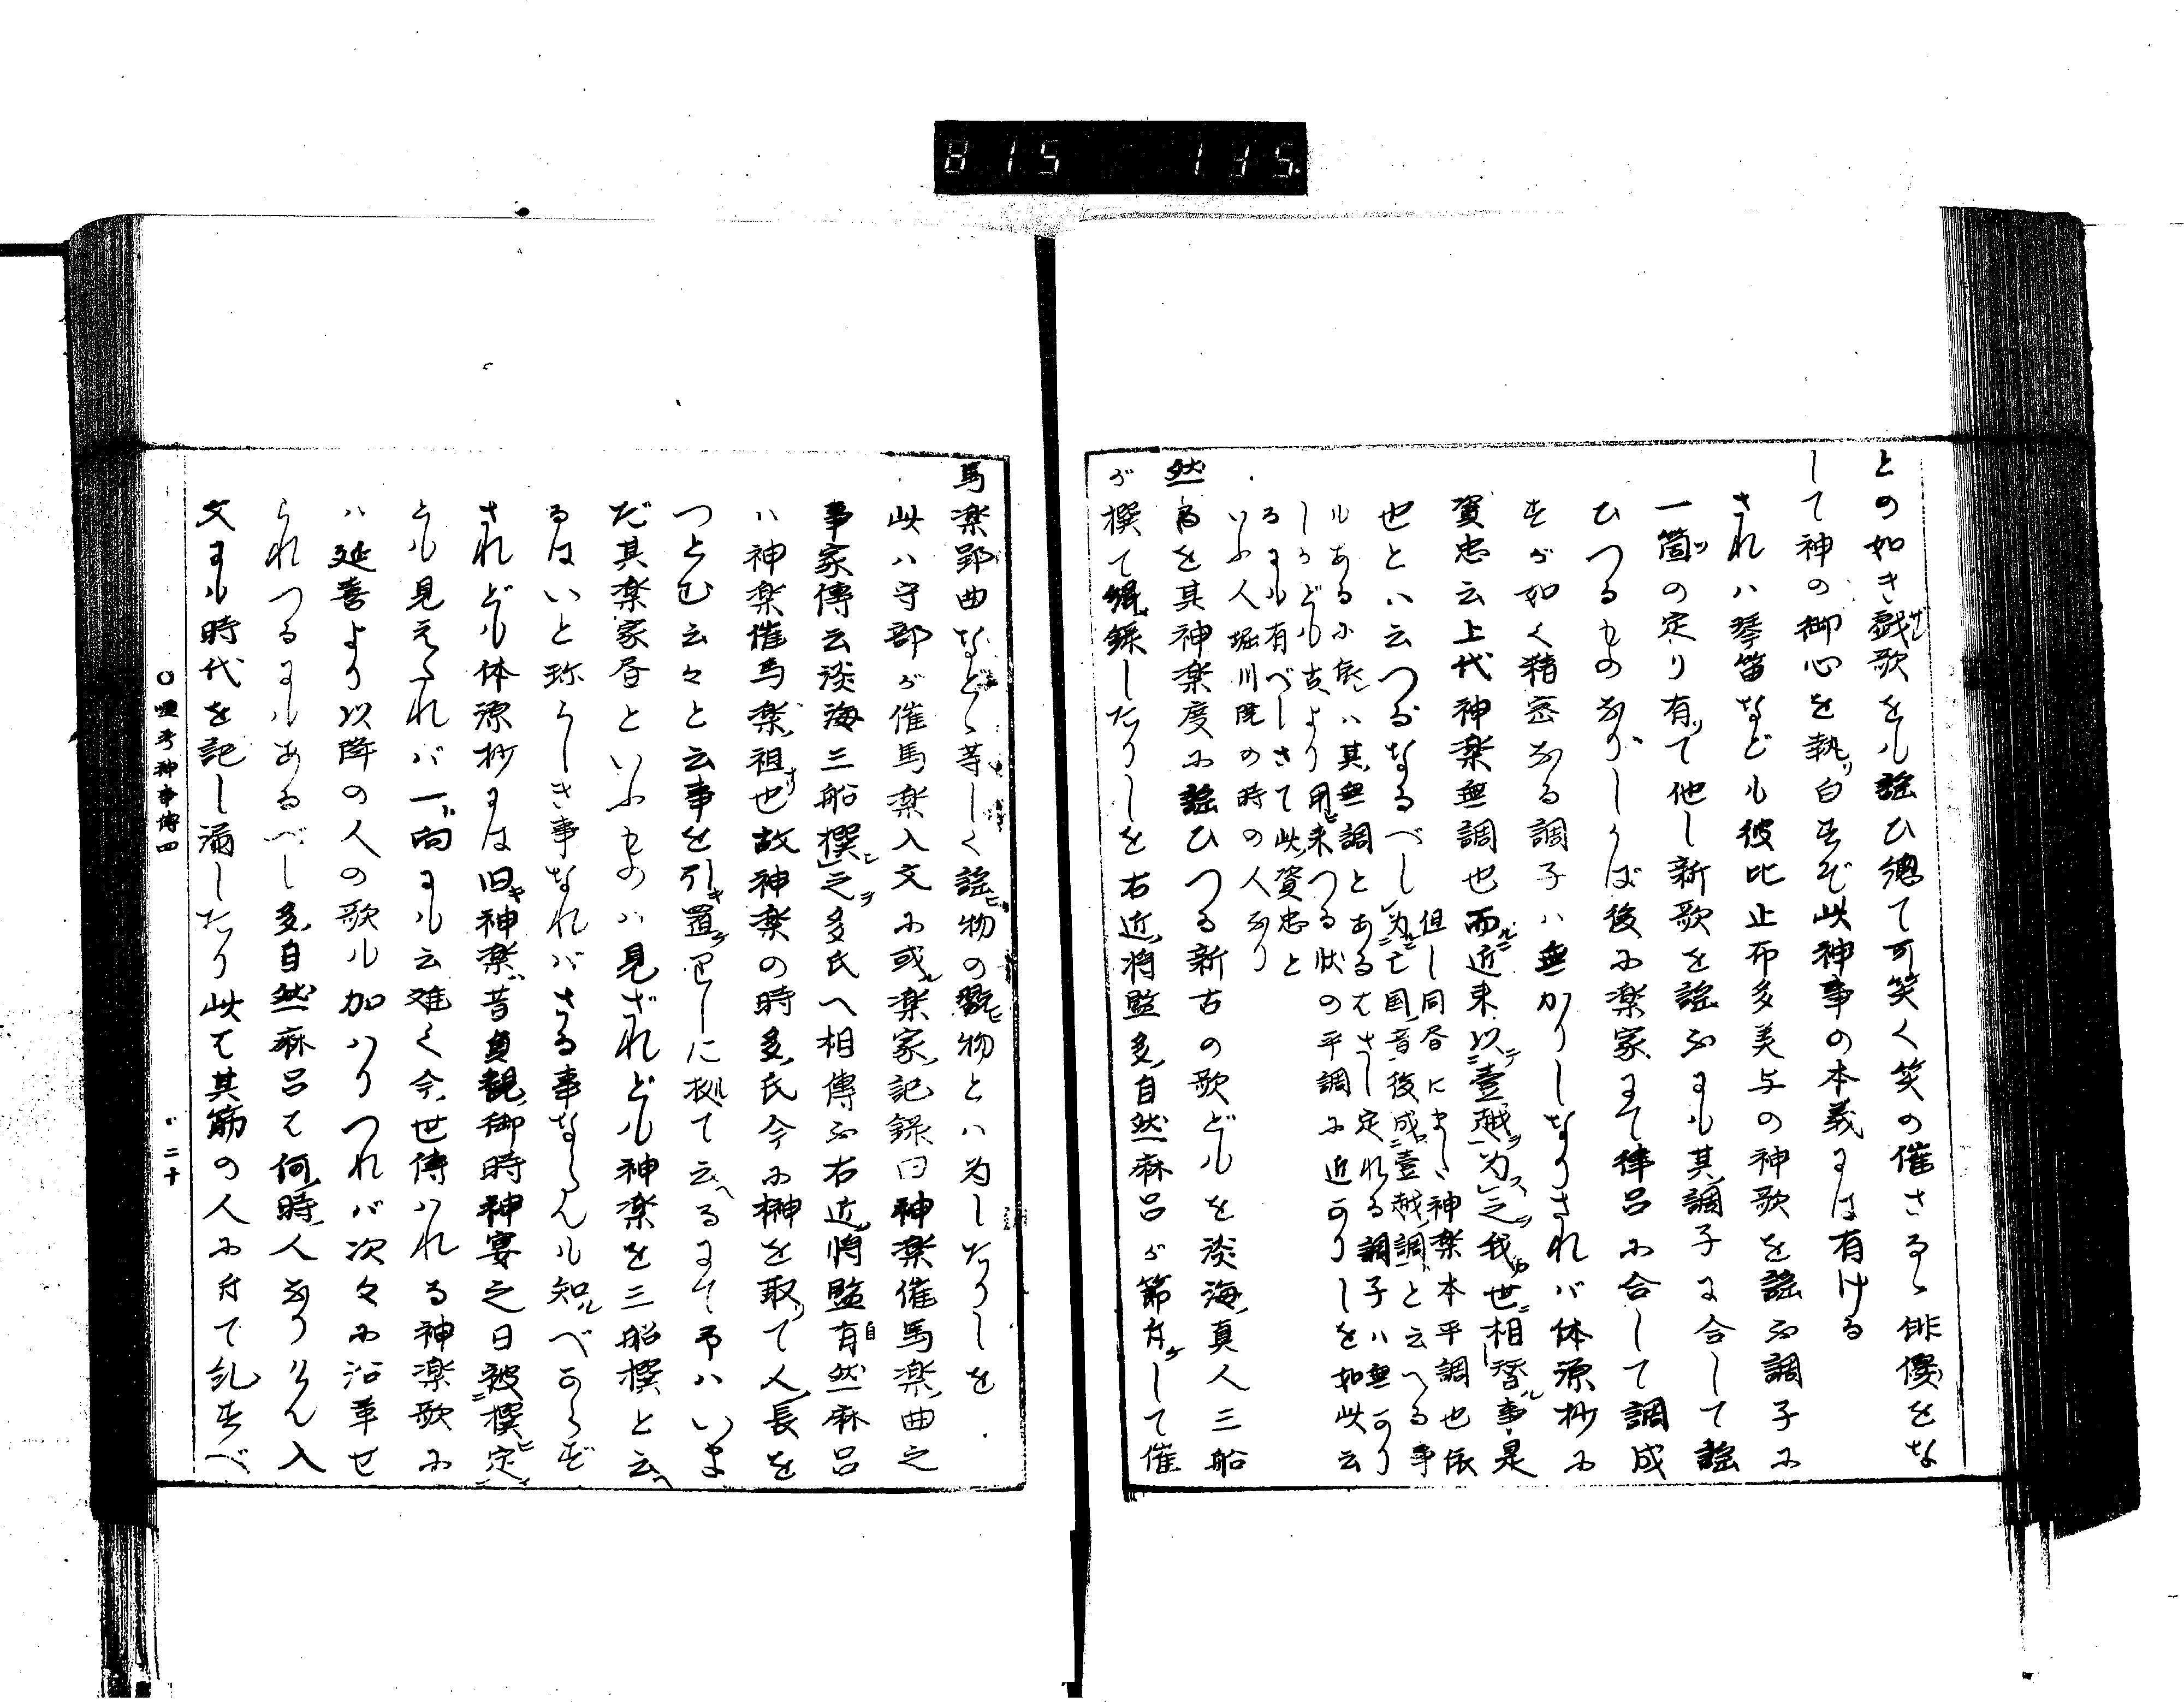 815 115
との如き戯歌をも謡ひ總て可笑く笑の催さるゝ俳優をな
して神の御心を執リ白すぞ此神事の本義には有ける
されハ琴笛なども彼比止布多美与の神歌を謡ふ調子に
一箇ツの定り有ッて他し新歌を謡ふにも其調子に合して謡
ひつるものなりしかば後に楽家にて律呂に合して調成
すが如く精密なる調子ハ無かりしなりされバ体源抄に
資忠云上代神楽無調也而ルニ近来以テ壹越ヲ為ス之ヲ我世ニ相替ル事是
也とハ云つるなるべし
但し同書に神楽本平調也依
為ニ亡国音後成ニ壹越調ト云へる事
もあるに依レハ其無調とあるはさし定れる調子ハ無かり
しかども古より用ヒ来つる状の平調に近かりしを如此云
るにも有べしさて此資忠と
いふ人堀川院の時の人なり
然るを其神楽度に謡ひつる新古の歌どもを淡海真人三船
が撰て緝録したりしを右近将監多自然麻呂が節付ケして催
馬楽郢曲などゝ等しく謡ヒ物の翫ヒ物とハ為したりしを
此ハ守部が催馬楽入文に或ル楽家記録曰神楽催馬楽曲之
事家傳云淡海三船撰ヒ之ヲ多氏へ相傳ふ右近将監自然麻呂
ハ神楽催馬楽祖也故神楽の時多氏今に榊を取ッて人長を
つとむ云々と云事を引キ置ケりしに拠ルて云へるにて予ハいま
だ其楽家昼といふものハ見ざれども神楽を三船撰と云へ
るはいと珍らしき事なればさる事ならんも知ルべからず
されども体源抄には旧キ神楽昔貞観御時神宴之日被ニ撰ヒ定メ
とも見えたれバ一ト向にも云難く今世傳ハれる神楽歌に
ハ延喜より以降の人の歌も加ハりつれバ次々に沿革せ
られつるにもあるべし多自然麻呂は何時人なりけん入
文にも時代を記し漏したり此は其筋の人に付て糺すべ
〇 神事博四
二十